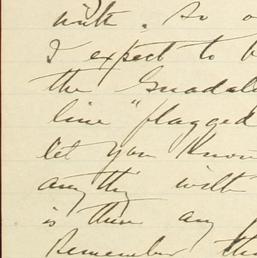 with. So
I expect to
the Guadal
line "flagged
let you know
any thing with
is there any
Remember tha